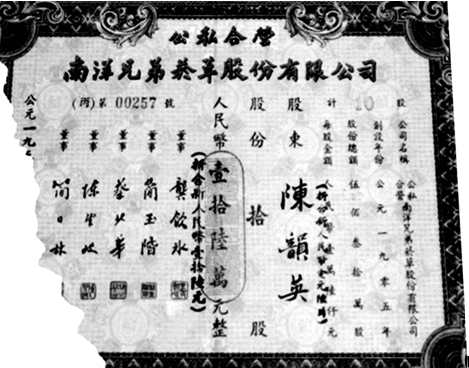 公私合營
南洋兄弟菸草股份有限公司
計 10 股
(丙)第 00257 號
公司名稱 公私合營 南洋兄弟菸草股份有限公司
創設年份 公元一九零五年
股份總額 伍佰叁拾萬股
每股金額 人民幣壹萬陸仟元
股東 陳韻英
股份 拾 股
人民幣 壹拾陸萬 元整
(折合新人民幣壹拾陸元)
董事 龔飲冰
董事 簡玉階
董事 蔡北華
董事
董事 簡日林
公元一九